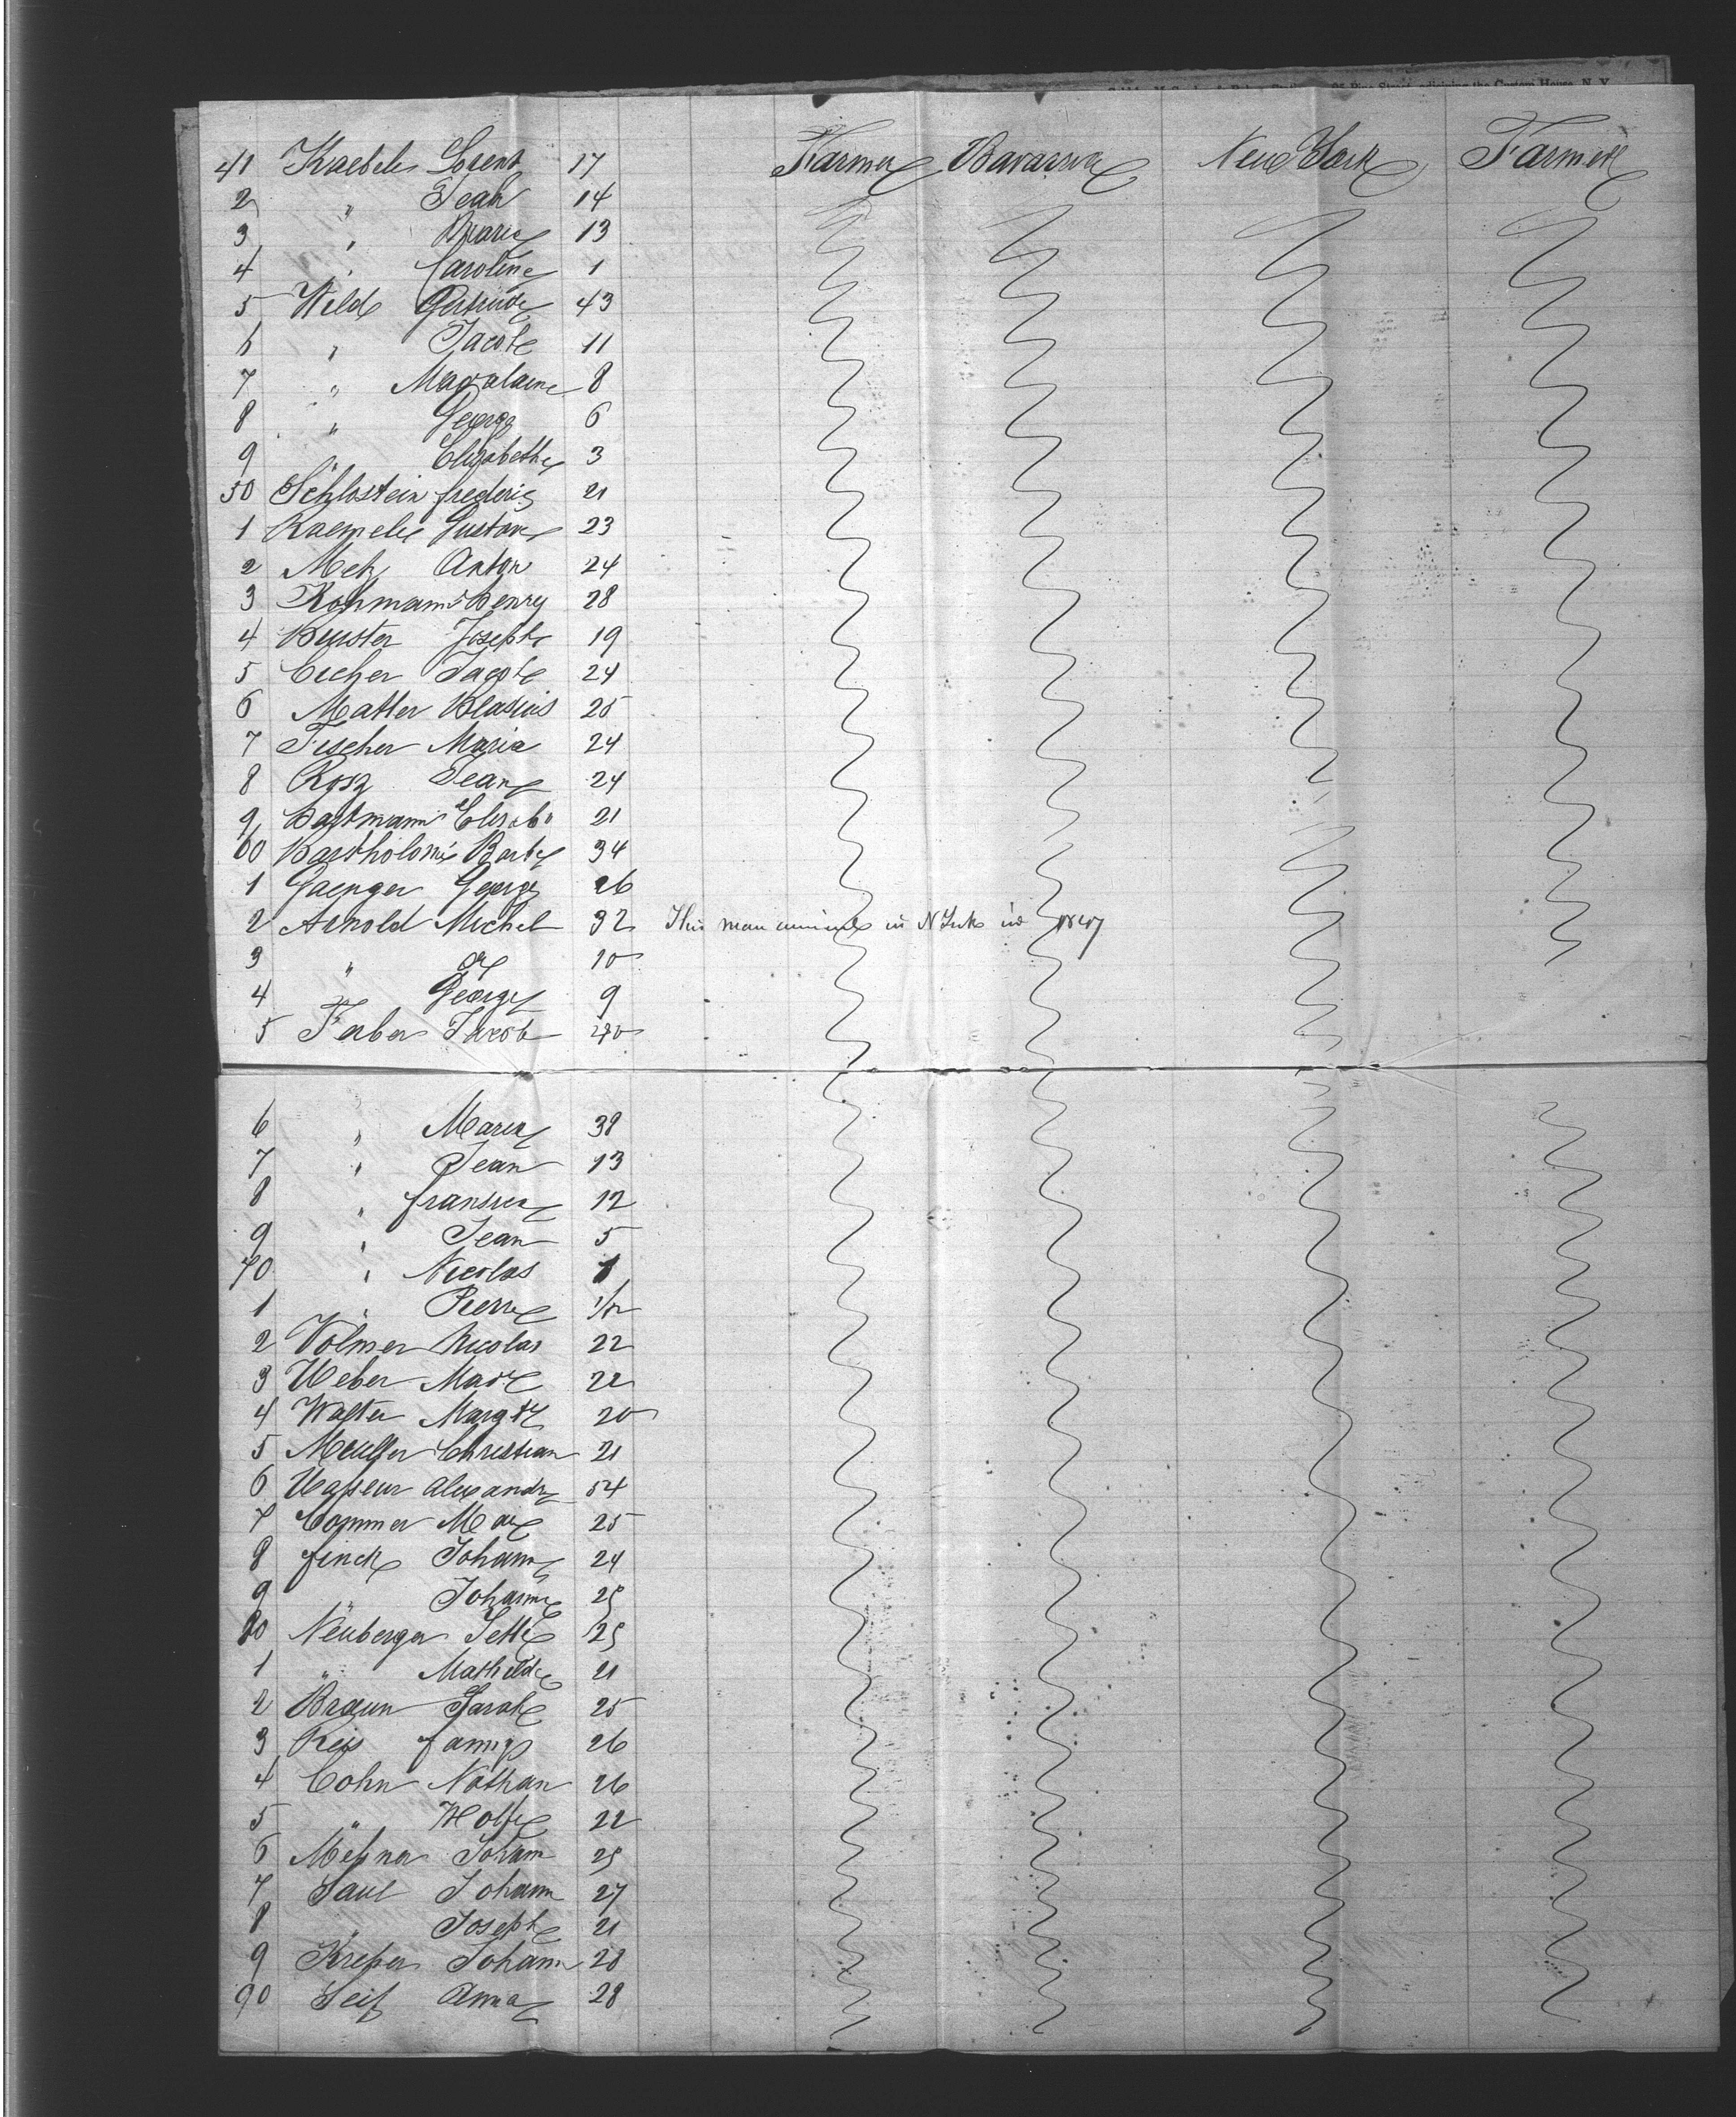 41 Kaebele Lorent 17 Farmer Bavaria New York Farmer
2 " Jean 14
3 " Marie 13
4 " Caroline 1
5 Weld Gertrude 43
6 " Jacob 11
7 " Magdalaine 8
8 " George 6
9 " Elisabethe 3
50 Schlostein frederig 21
1 Gustave 23
2 Metz Anton 24
3 Henry 28
4 Burster Joseph 19
5 Eicher Jacob 24
6 Matter Blasius 25
7 Fischer Maria 24
8 Rosz Jean 24
9 Hartmann Elisab. 21
60 Bartholomé Barbe 34
1 Gaenger George 26
2 Arnold Michel 32 This man arrived in N York in 1847
3 " 10
4 George 9
5 Faber Jacob 40
6 " Maria 38
7 " Jean 13
8 " 12
9 " Jean 5
70 " Nicolas 1
1 " Pierre 1/12
2 Volmer Nicolas 22
3 Weber Marie 22
4 Walter 20
5 Muller Christian 21
6 Alexandre 54
7 Commer 25
8 finck Johann 24
9 " Johanne 25
80 Neuberger Jette 25
1 " Mathilde 21
2 Braun Sarah 25
3 Reis fanny 26
4 Cohn Nathan 26
5 " Wolfe 22
6 Meßner Johann 25
7 Saul Johann 27
8 " Joseph 21
9 Johann 28
90 Seif Anna 28